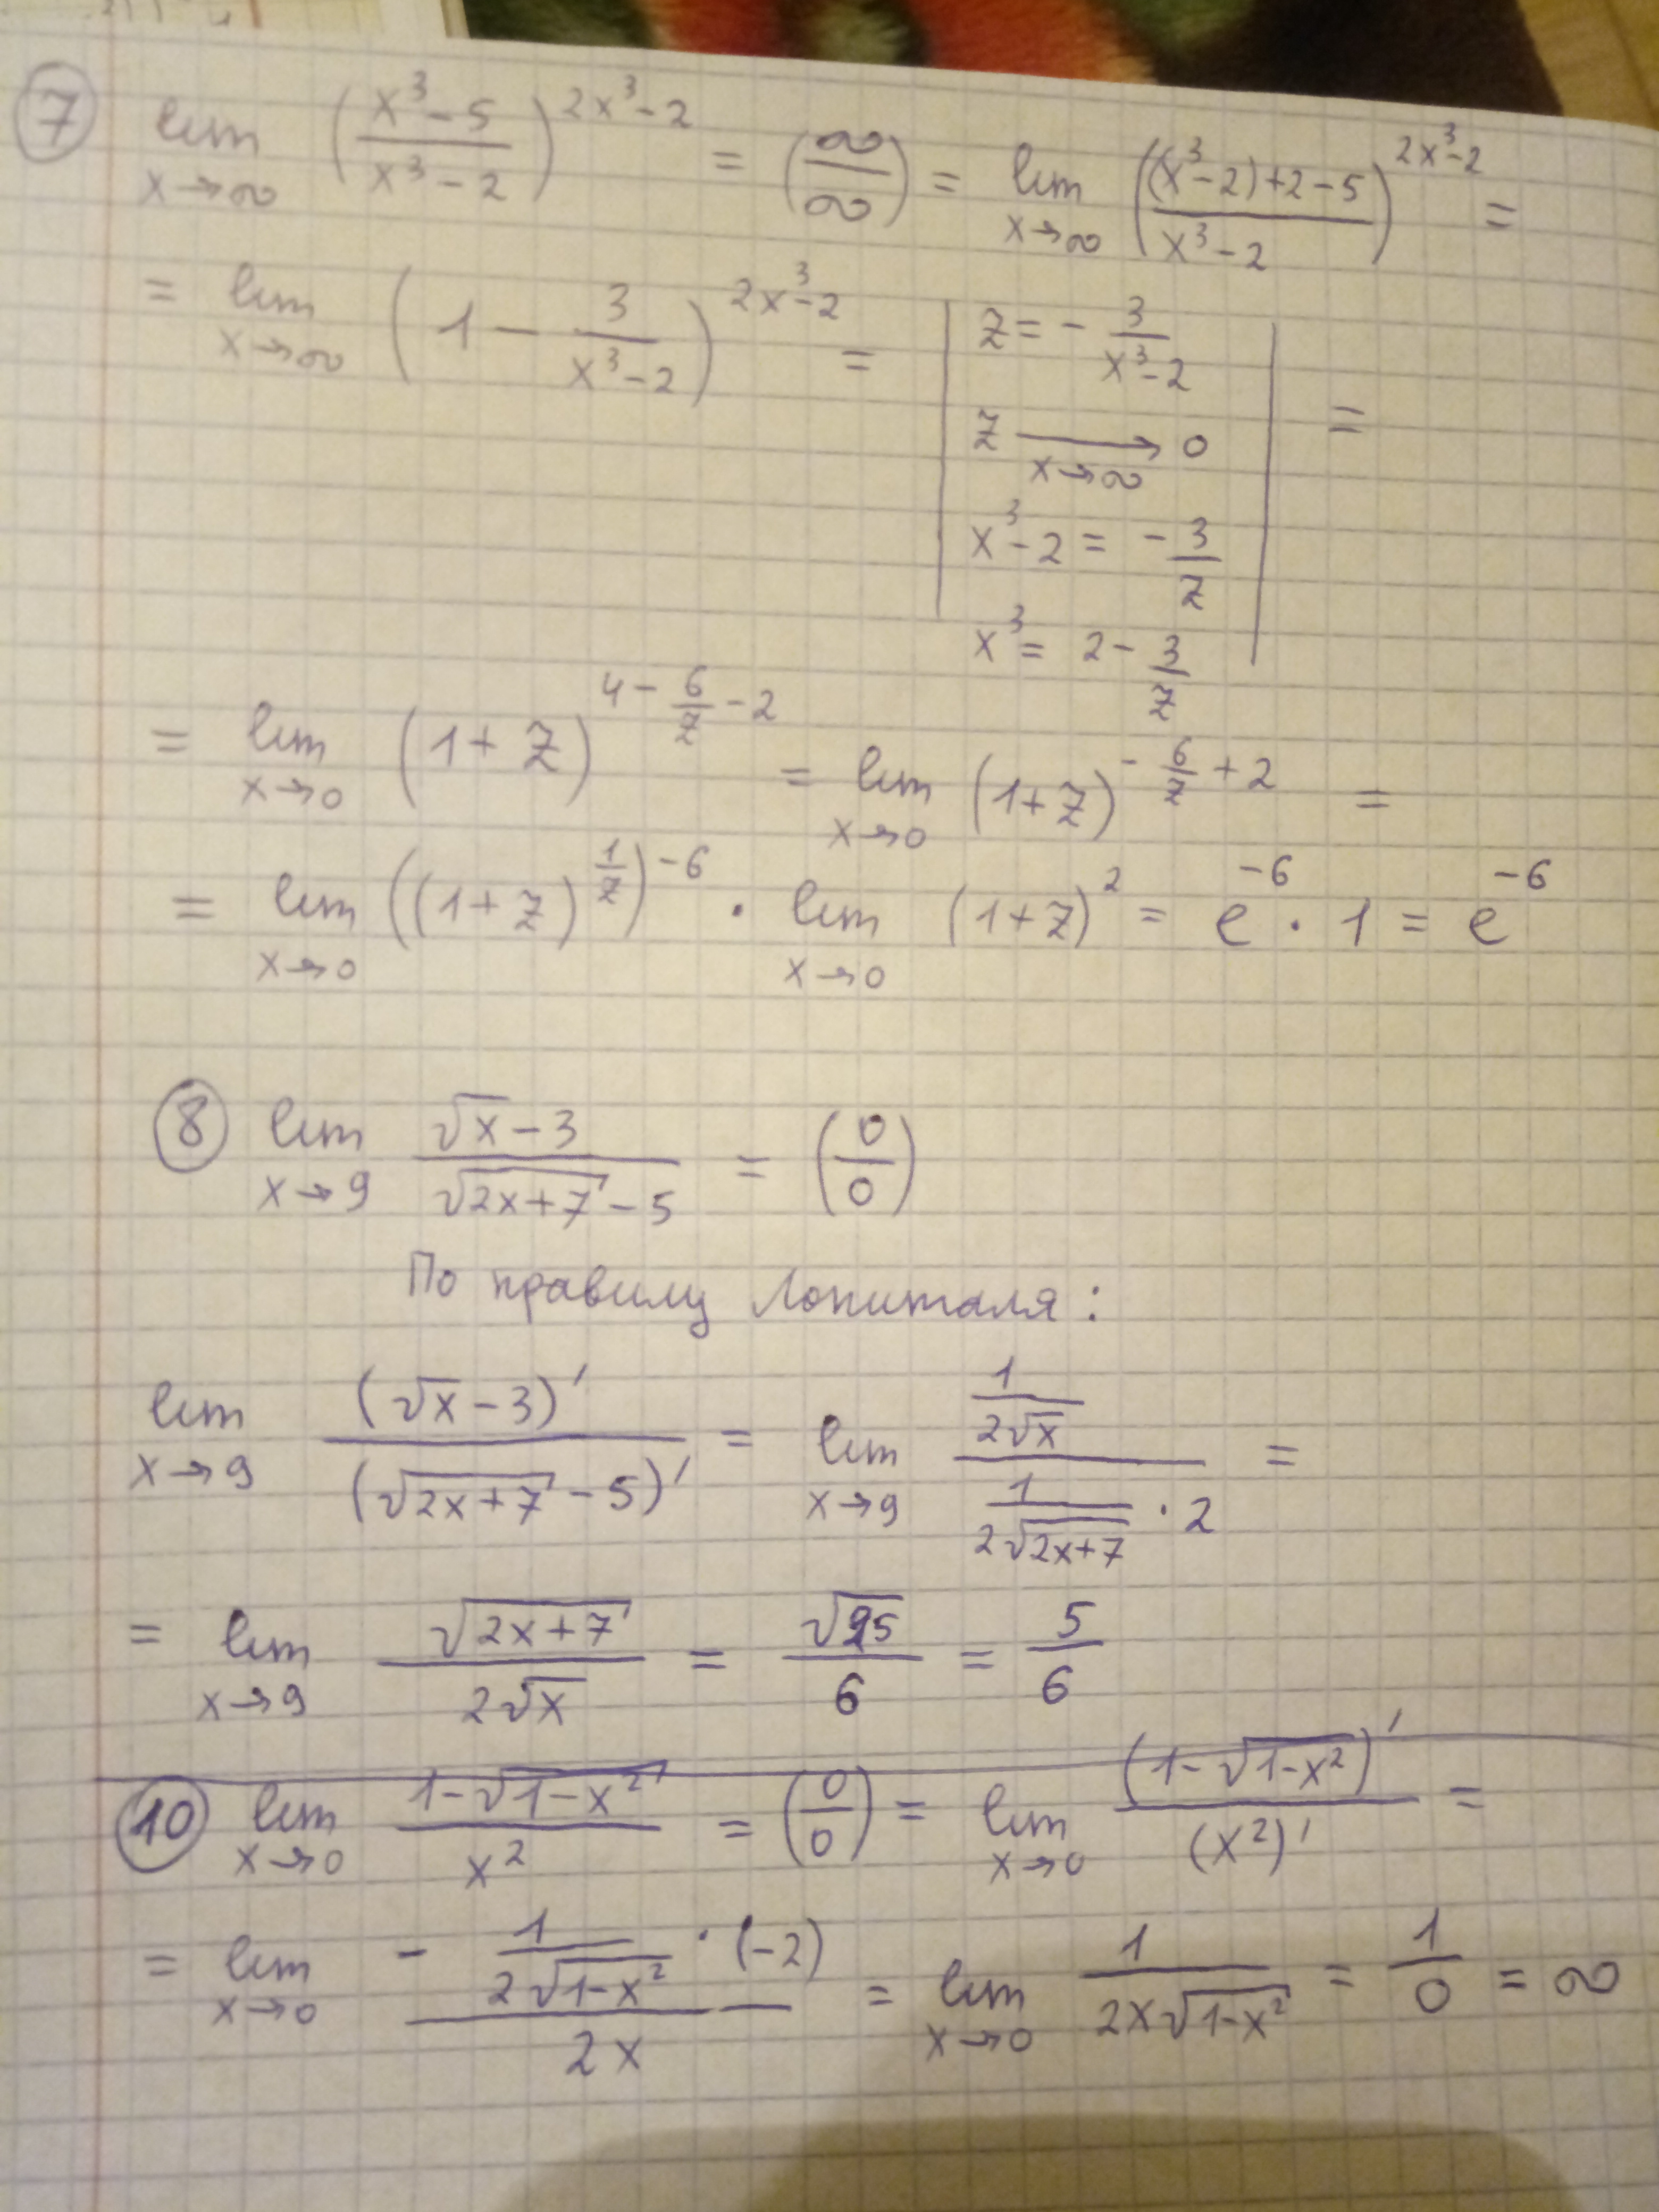 ⑦ lim x→∞ ((x³-5)/(x³-2))^(2x³-2) = (∞/∞) = lim x→∞ (((x³-2)+2-5)/(x³-2))^(2x³-2) =
= lim x→∞ (1 - 3/(x³-2))^(2x³-2) = | z = - 3/(x³-2)
z → 0 x→∞ | =
x³-2 = - 3/z
x³ = 2 - 3/z
= lim x→0 (1+z)^(4 - 6/z - 2) = lim x→0 (1+z)^(- 6/z + 2) =
= lim x→0 ((1+z)^(1/z))^(-6) · lim x→0 (1+z)² = e^(-6) · 1 = e^(-6)
⑧ lim x→9 (√x - 3)/(√(2x+7) - 5) = (0/0)
По правилу Лопиталя:
lim x→9 (√x - 3)'/(√(2x+7) - 5)' = lim x→9 (1/(2√x))/(1/(2√(2x+7)) · 2) =
= lim x→9 √(2x+7)/(2√x) = √25/6 = 5/6
⑩ lim x→0 (1-√(1-x²))/x² = (0/0) = lim x→0 (1-√(1-x²))'/(x²)' =
= lim x→0 (- 1/(2√(1-x²)) · (-2))/(2x) = lim x→0 1/(2x√(1-x²)) = 1/0 = ∞